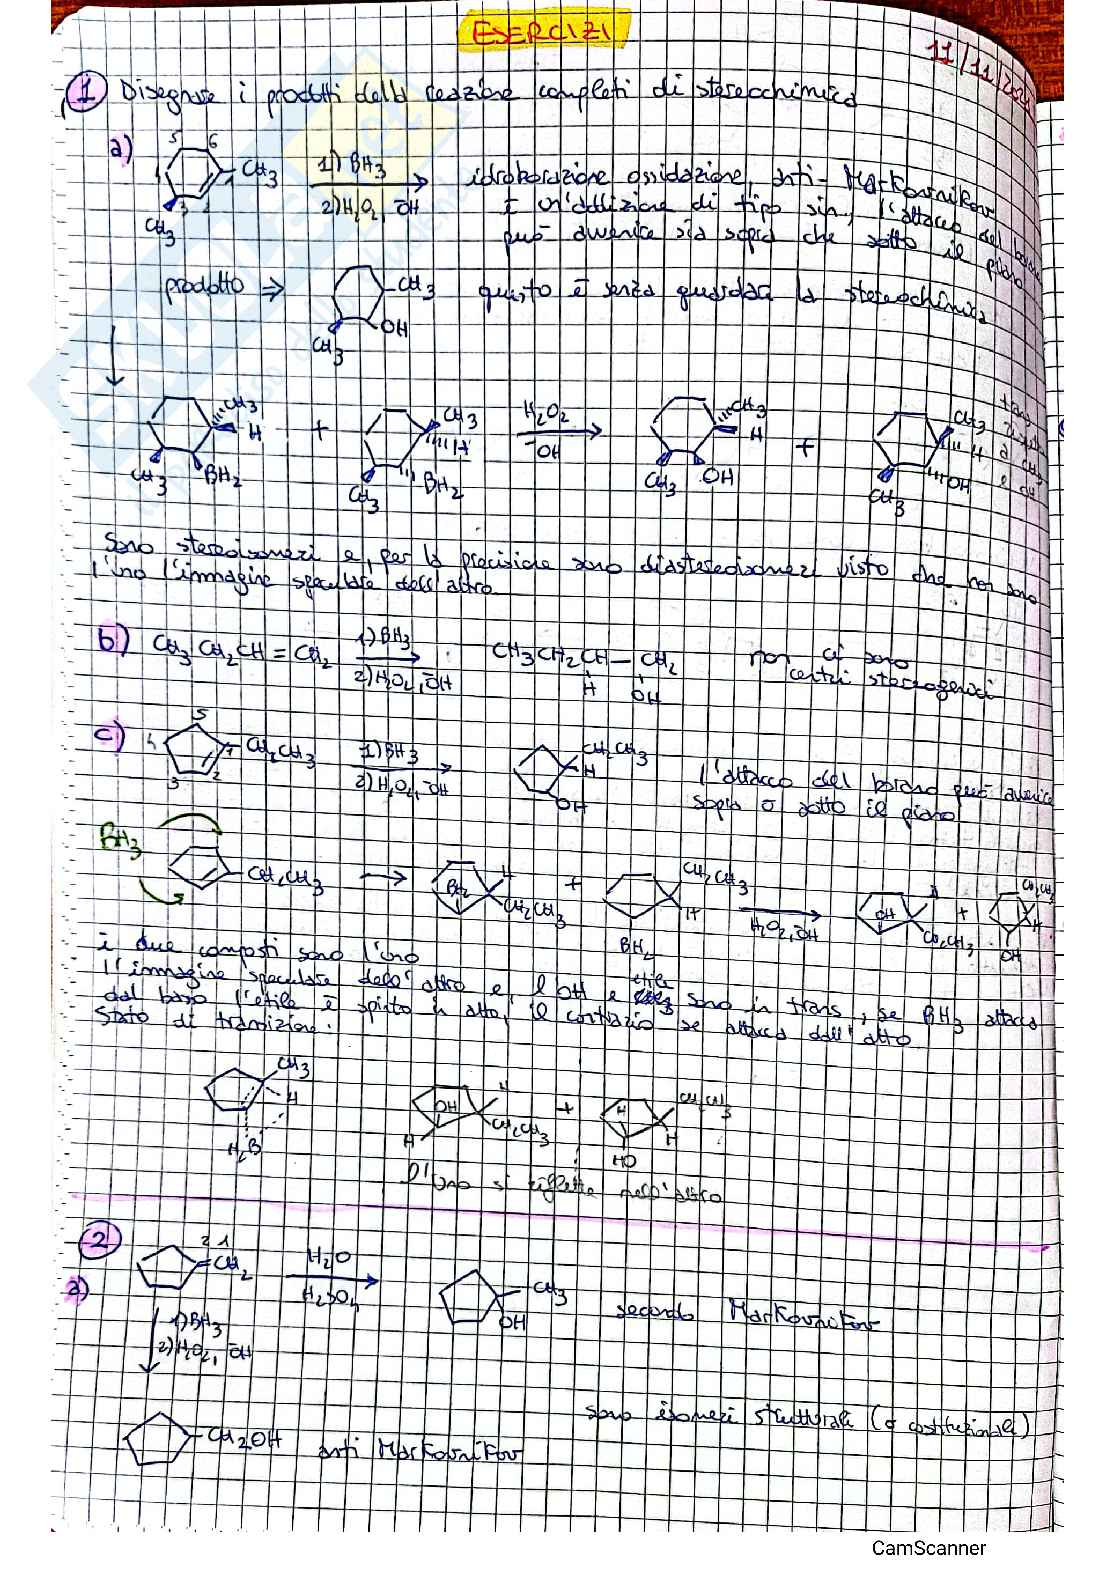 ESERCIZI
11/11/202
1 Disegnare i prodotti della reazione completi di stereochimica
a) 5 6 1 2 3 CH3 CH3 1) BH3 2) H2O2, ŌH idroborazione ossidazione, anti-Markovnikov
è un'addizione di tipo sin, l'attacco del borano
può avvenire sia sopra che sotto il piano
prodotto ⇒ CH3 OH CH3 questo è senza guardare la stereochimica
CH3 H BH2 CH3 + CH3 H BH2 CH3 H2O2 ŌH CH3 H OH CH3 + CH3 H OH CH3
Sono stereoisomeri e, per la precisione sono diastereoisomeri visto che non sono
l'uno l'immagine speculare dell'altro
b) CH3CH2CH=CH2 1) BH3 2) H2O2, ŌH CH3CH2CH—CH2 H OH non ci sono
centri stereogenici
c) 5 4 3 2 1 CH2CH3 1) BH3 2) H2O2, ŌH CH2CH3 H OH l'attacco del borano può avvenire
sopra o sotto il piano
BH3 CH2CH3 → BH2 H CH2CH3 + CH2CH3 H BH2 H2O2, ŌH OH H CH2CH3 + CH2CH3 H OH
i due composti sono l'uno
l'immagine speculare dell'altro e, l'OH e etile sono in trans, se BH3 attacca
dal basso l'etile è spinto in alto, il contrario se attacca dall'alto
Stato di transizione:
CH3 H H2B OH H CH2CH3 H + H CH2CH3 H HO
L'uno si riflette nell'altro
2
a) 2 1 =CH2 H2O H2SO4 CH3 OH secondo Markovnikov
1) BH3
2) H2O2, ŌH
sono isomeri strutturali (o costituzionali)
CH2OH anti Markovnikov
CamScanner